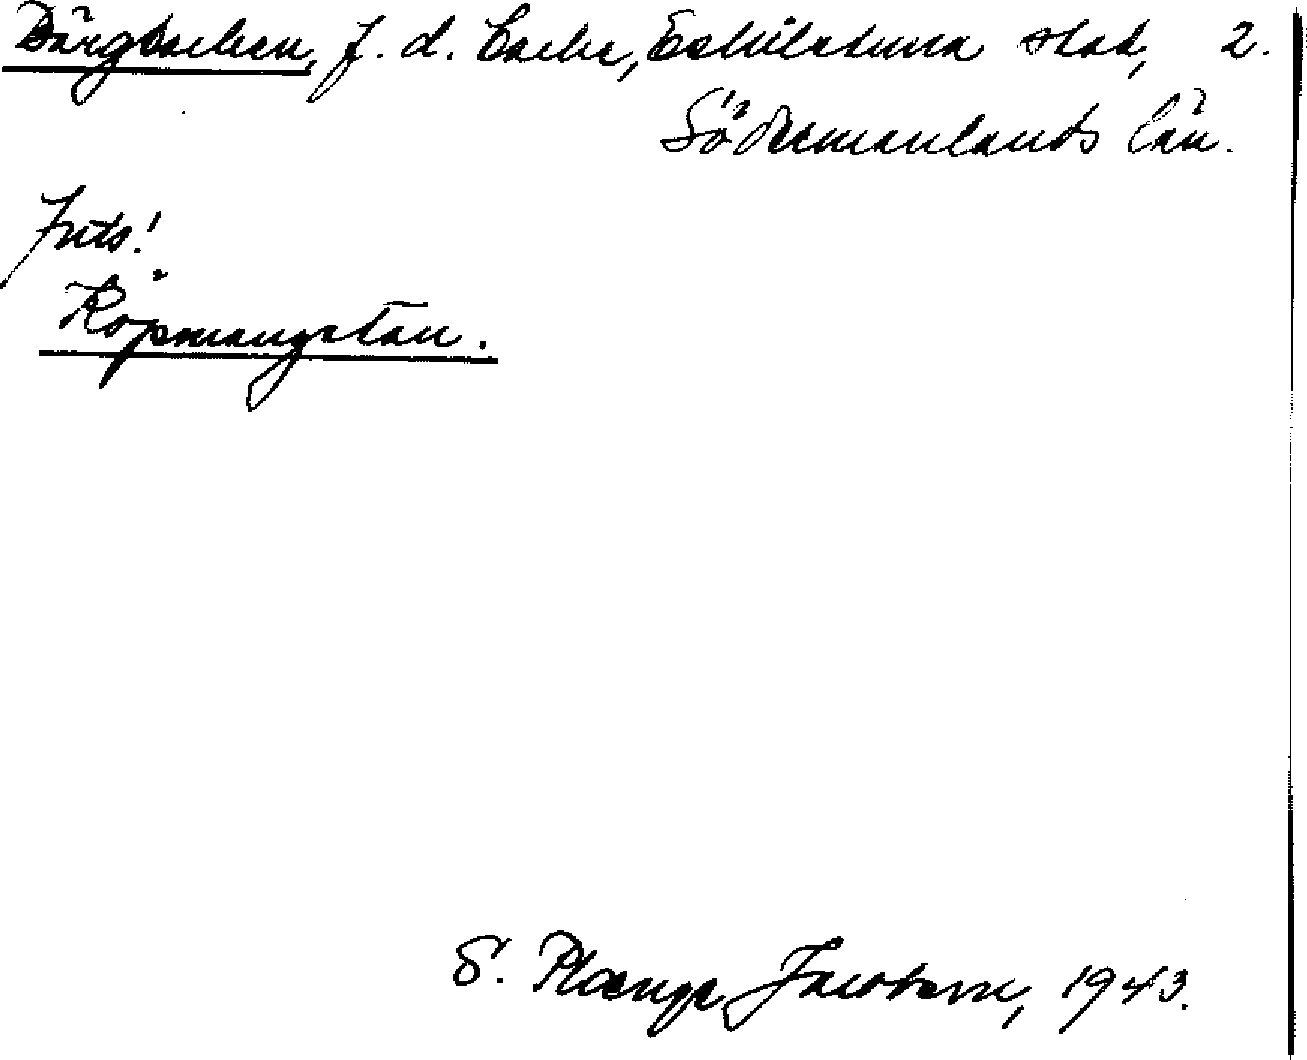 Bärgbacken, f. d. backe, Eskilstuna stad, 2.
Södermanlands län.
Jvts!
Köpmangatan.
S. Plænge Jacobson, 1943.